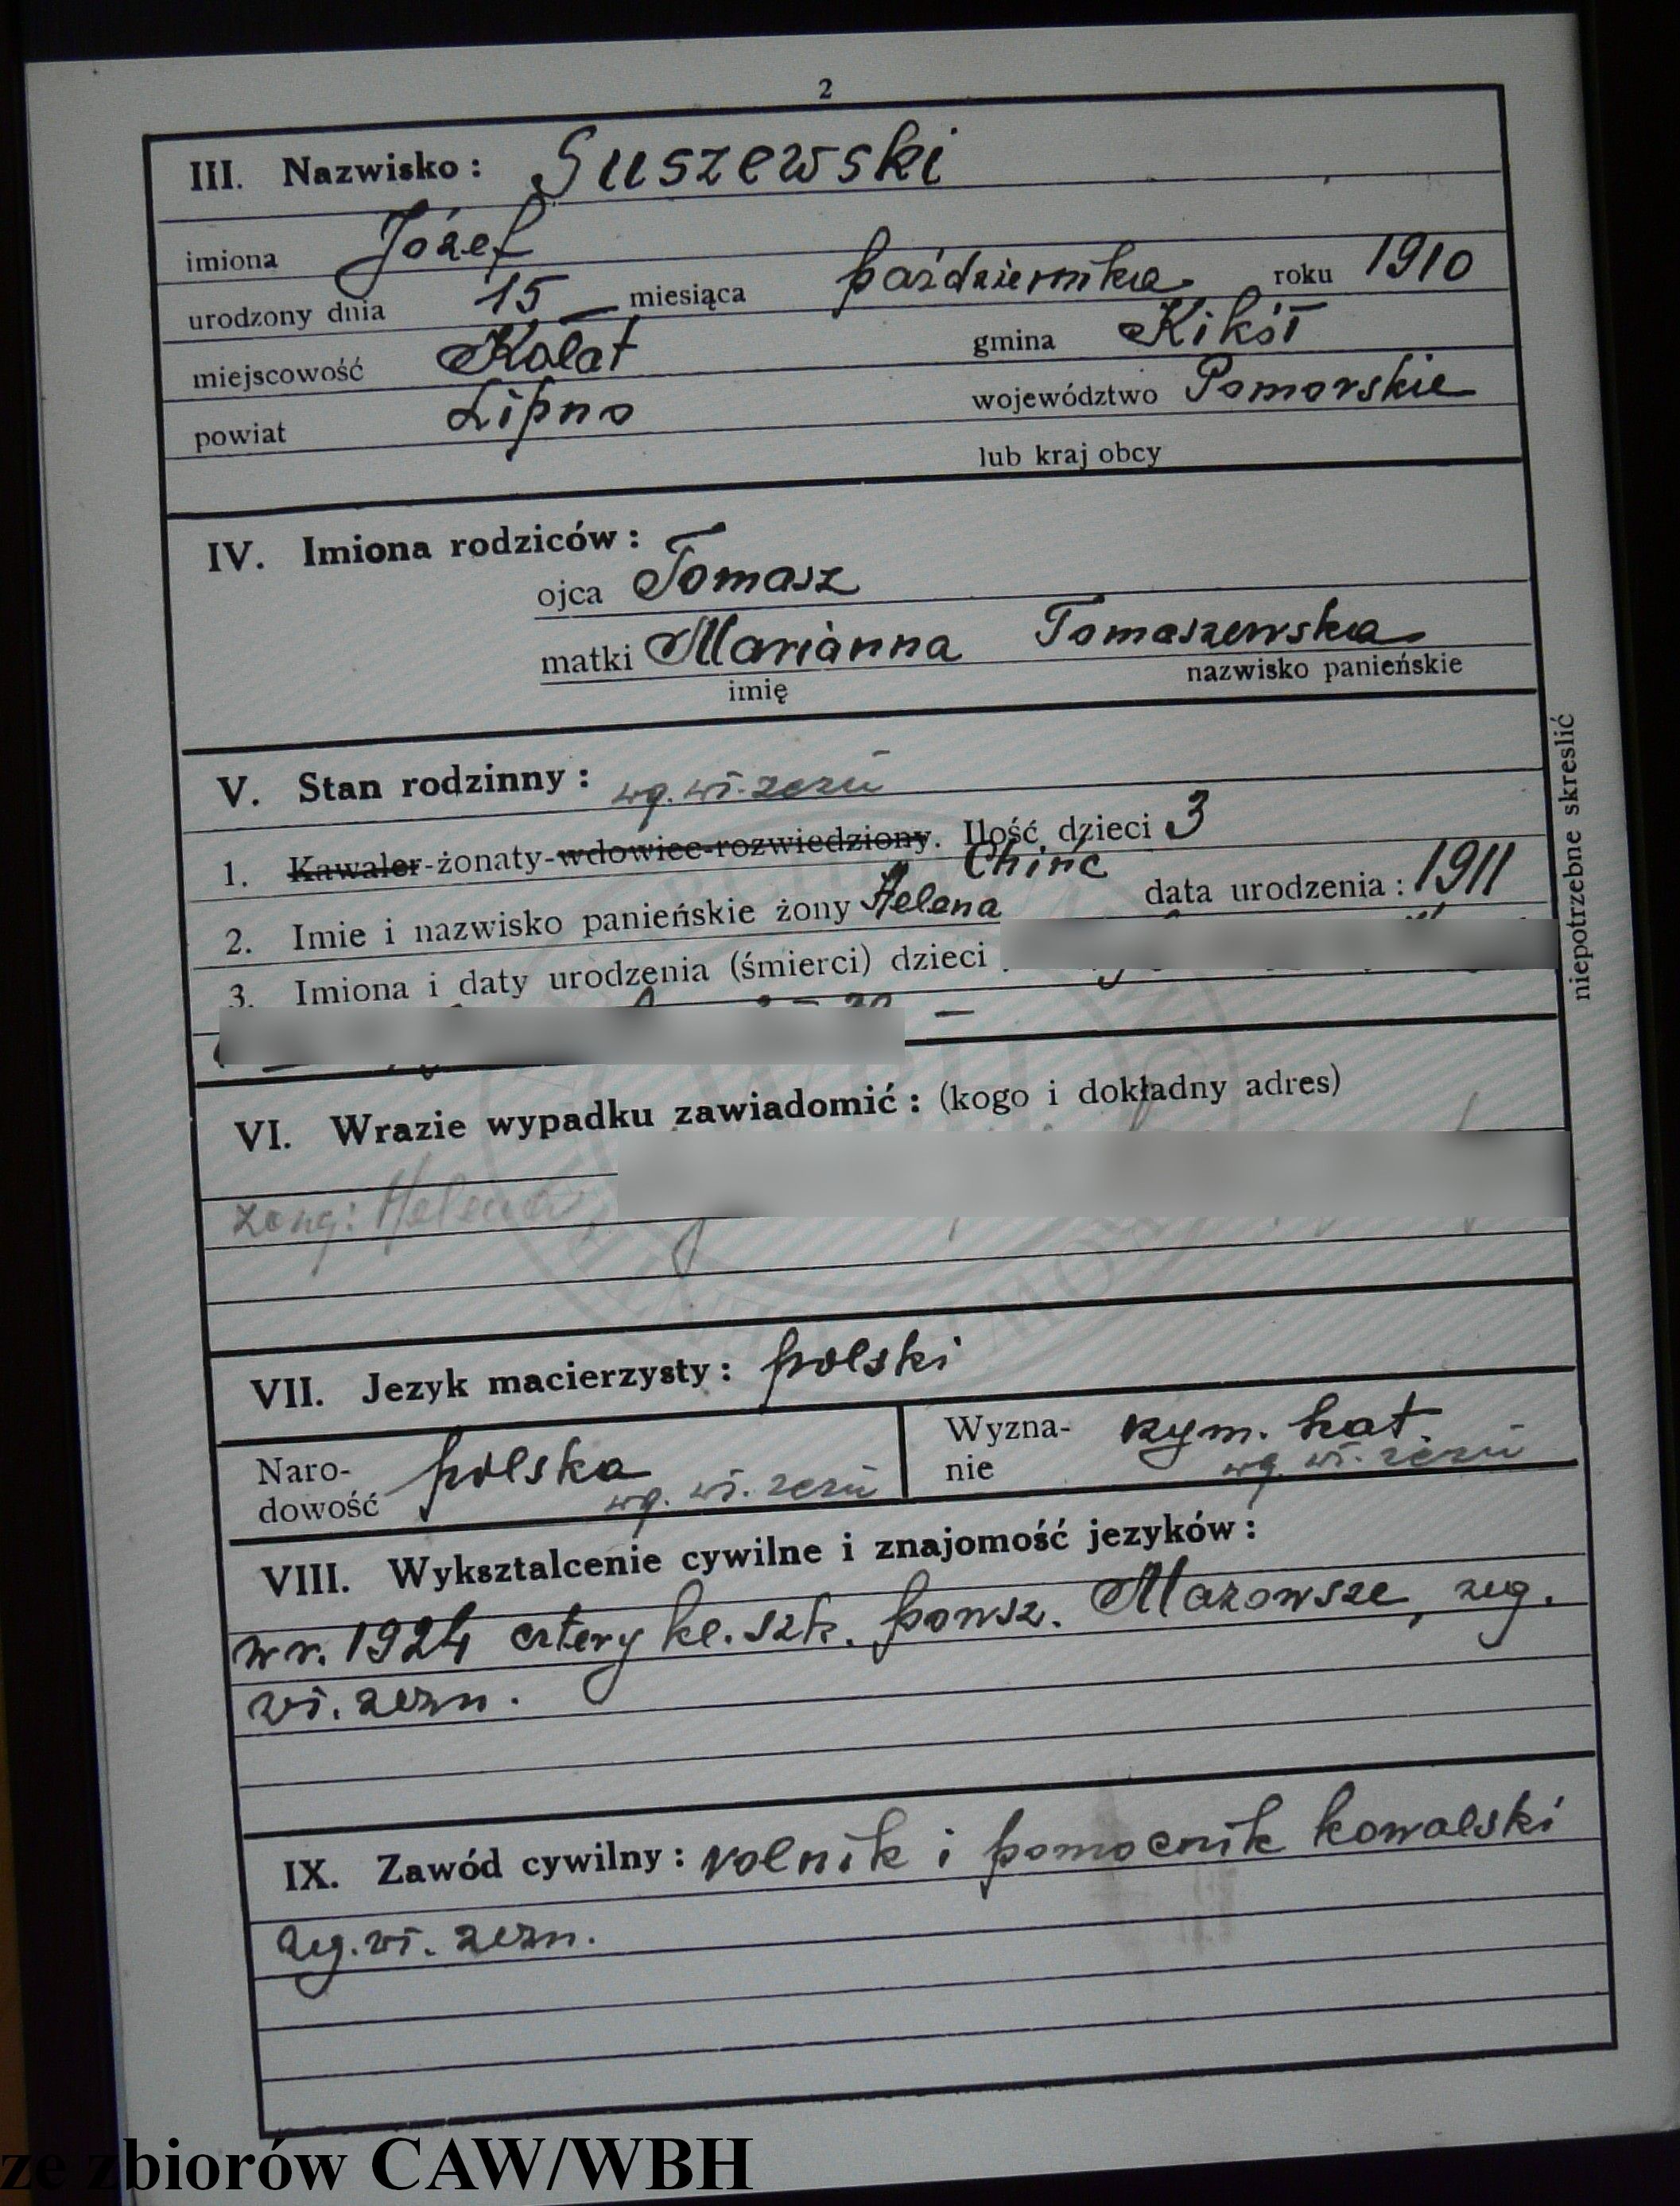 2
III. Nazwisko: Suszewski
imiona Józef
urodzony dnia 15 miesiąca października roku 1910
miejscowość Kołat gmina Kikół
powiat Lipno województwo Pomorskie
lub kraj obcy
IV. Imiona rodziców:
ojca Tomasz
matki Marianna Tomaszewska
imię nazwisko panieńskie
V. Stan rodzinny: wg. wł. zezn
1. Kawaler-żonaty-wdowiec-rozwiedziony. Ilość dzieci 3
Chinc
2. Imie i nazwisko panieńskie żony Helena data urodzenia: 1911
3. Imiona i daty urodzenia (śmierci) dzieci
niepotrzebne skreslić
VI. Wrazie wypadku zawiadomić: (kogo i dokładny adres)
żonę: Helena
VII. Jezyk macierzysty: polski
Naro-
dowość polska
wg. wł. zezn
Wyzna-
nie rzym. kat.
wg. wł. zezn
VIII. Wyksztalcenie cywilne i znajomość jezyków:
w r. 1924 cztery kl. szk. powsz. Mazowsze, zeg.
wł. zezn.
IX. Zawód cywilny: rolnik i pomocnik kowalski
zeg. wł. zezn.
ze zbiorów CAW/WBH